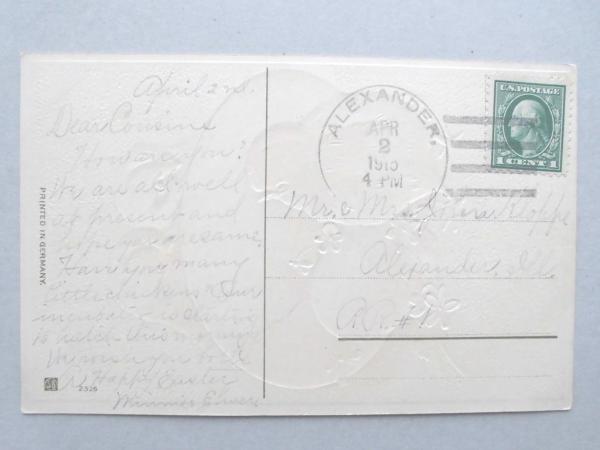 April 2nd.
Dear Cousins
How are you?
We are all well
at present and
hope you are same.
Have you many
little chickens? Our
incubator is starting
to hatch this morning
We wish you to a
A Happy Easter
Minnie
PRINTED IN GERMANY.
2326
ALEXANDER,
APR
2
1915
4 PM
U.S. POSTAGE
1 CENT 1
Mr. & Mrs. John
Alexander, Ill.
R.R. # 1